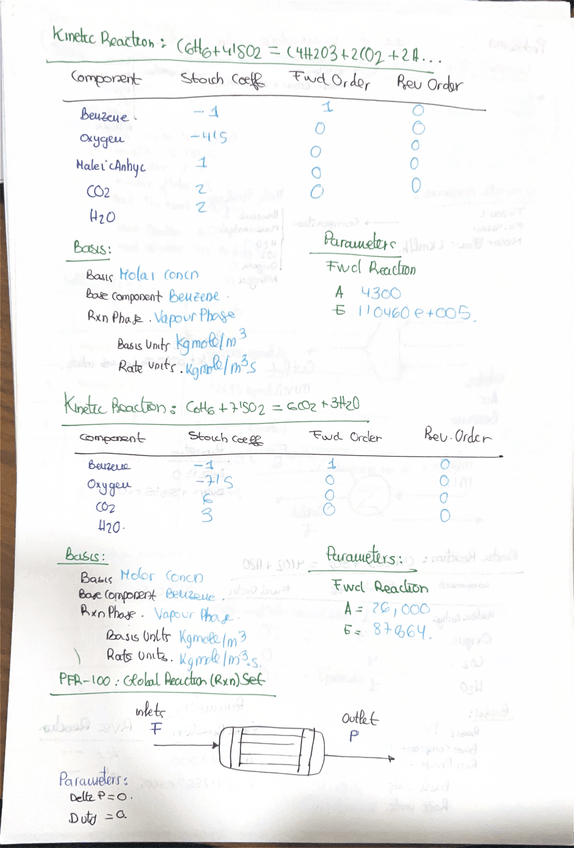 Kinetic Reaction : C6H6+4'5O2 = C4H2O3+2CO2+2H...
Component Stoich Coeff Fwd Order Rev Order
Benzene. -1 1 0
Oxygen -4'5 0 0
MaleicAnhyc 1 0 0
CO2 2 0 0
H2O 2 0
Basis:
Basis Molar Concn
Base Component Benzene.
Rxn Phase. Vapour Phase
Basis Units Kgmole/m3
Rate Units. Kgmole/m3.s
Parameters
Fwd Reaction
A 4300
E 1'10460e+005.
Kinetic Reaction: C6H6+7'5O2 = 6CO2+3H2O
Component Stoich Coeff Fwd Order Rev. Order
Benzene -1 1 0
Oxygen -7'5 0 0
CO2 6 0 0
H2O. 3 0 0
Basis:
Basis Molar Concn
Base Component Benzene.
Rxn Phase. Vapour Phase.
Basis Units Kgmole/m3
Rate Units. Kgmole/m3.s.
Parameters:
Fwd Reaction
A = 26,000
E = 87864.
PFR-100: Global Reaction (Rxn) Set
inlets
F
Outlet
P
Parameters:
Delta P = 0.
Duty = 0.